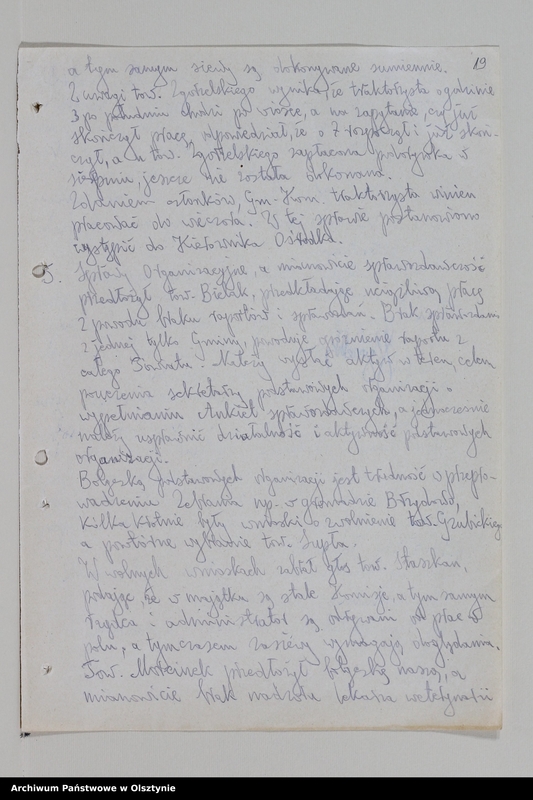 19
a tym samym siewy są dokonywane sumiennie.
Z uwagi tow. Zgorzelskiego wynika, że traktorzysta o godzinie
3 po południu chodzi po wiosce, a na zapytanie, czy już
skończył pracę, odpowiedział, że o 7 rozpoczął i już skoń-
czył, a u tow. Zgorzelskiego zapłacona podorywka w
sierpniu, jeszcze nie została dokonana.
Zdaniem członków, Gm-Kom. traktorzysta winien
pracować do wieczora. W tej sprawie postanowiono
wystąpić do Kierownika Ośrodka.
5. Sprawy Organizacyjne, a mianowicie sprawozdawczość
przedłożył tow. Bielak, przedkładając uciążliwą pracę
z powodu braku raportów i sprawozdań. Brak sprawozdania
z jednej tylko Gminy, powoduje opóźnienie raportu z
całego Powiatu. Należy wysłać aktyw w teren, celem
pouczenia sekretarzy podstawowych organizacji o
wypełnianiu Ankiet sprawozdawczych, a jednocześnie
należy usprawnić działalność i aktywność podstawowych
organizacji.
Bolączką podstawowych organizacji jest trudność w przepro-
wadzeniu Zebrania np. w gromadzie
Kilka krotnie były wnioski o zwolnienie tow. Grubickiego
a powtórne wybranie tow. Lupta.
W wolnych wnioskach zabrał głos tow. Staszkan,
podając, że w majątku są stale Komisje, a tym samym
rządca i administrator są odrywani od prac w
polu, a tymczasem zasiewy wymagają doglądania.
Tow. Morcinek przedłożył bolączkę naszą, a
mianowicie brak nadzoru lekarza weterynarii
Archiwum Państwowe w Olsztynie